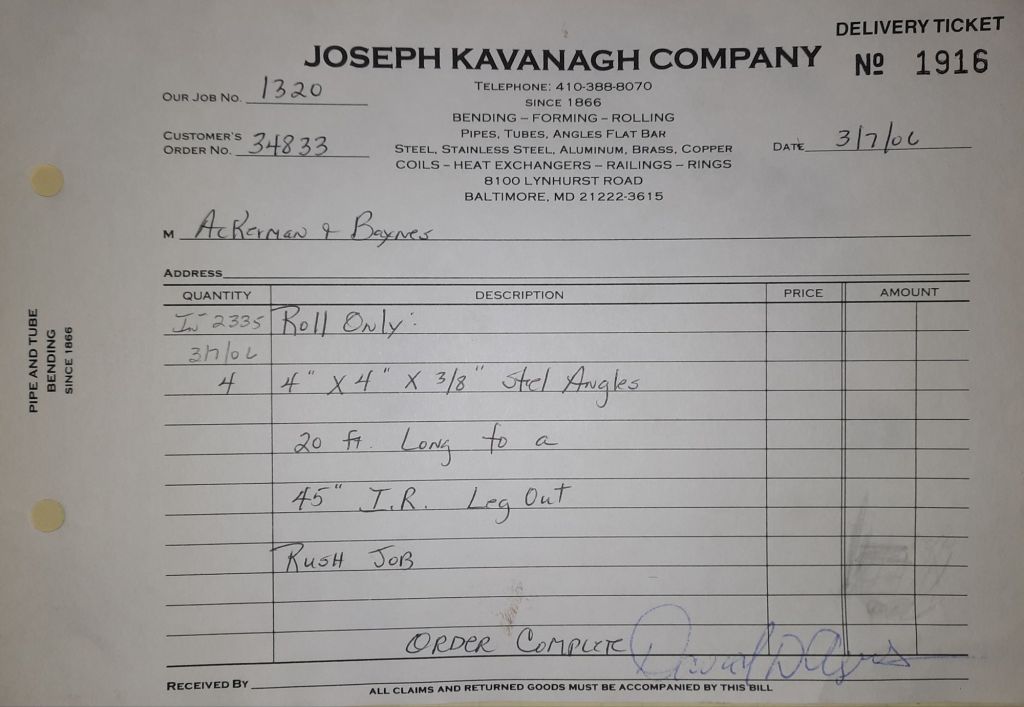 DELIVERY TICKET
JOSEPH KAVANAGH COMPANY
Nº 1916
OUR JOB NO. 1320
TELEPHONE: 410-388-8070
SINCE 1866
BENDING – FORMING – ROLLING
CUSTOMER'S ORDER NO. 34833
PIPES, TUBES, ANGLES FLAT BAR
STEEL, STAINLESS STEEL, ALUMINUM, BRASS, COPPER
DATE 3/7/06
COILS – HEAT EXCHANGERS – RAILINGS – RINGS
8100 LYNHURST ROAD
BALTIMORE, MD 21222-3615
M Ackerman & Baynes
ADDRESS
QUANTITY DESCRIPTION PRICE AMOUNT
In 2335 Roll Only:
3/7/06
4 4" X 4" X 3/8" Steel Angles
20 ft. Long to a
45" I.R. Leg Out
RUSH JOB
ORDER COMPLETE
RECEIVED BY
ALL CLAIMS AND RETURNED GOODS MUST BE ACCOMPANIED BY THIS BILL
PIPE AND TUBE
BENDING
SINCE 1866